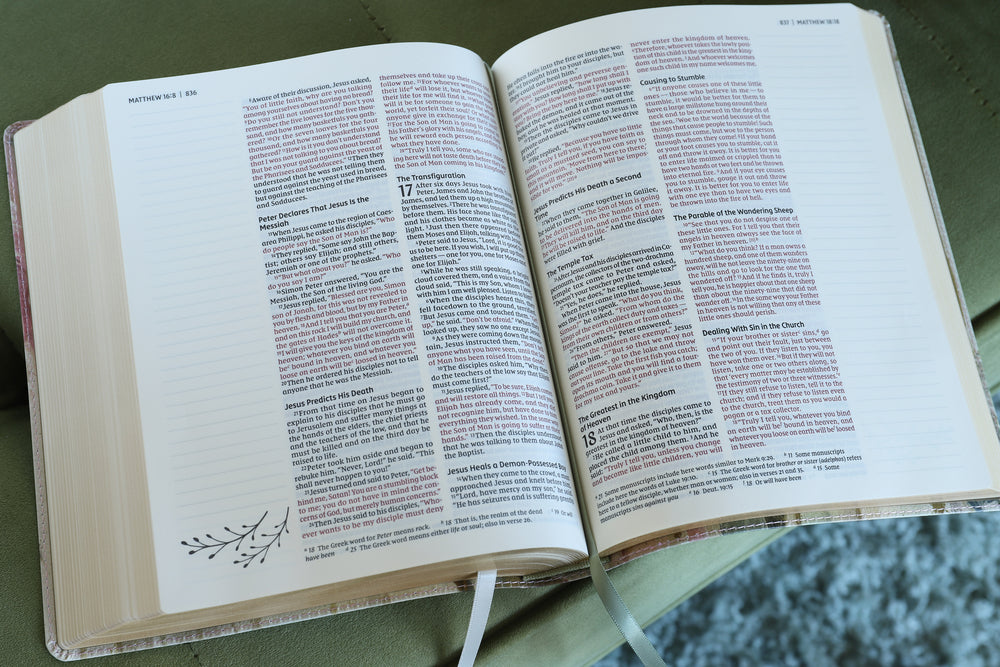 MATTHEW 16:8 | 836
⁸Aware of their discussion, Jesus asked,
"You of little faith, why are you talking
among yourselves about having no bread?
⁹Do you still not understand? Don't you
remember the five loaves for the five thou-
sand, and how many basketfuls you gath-
ered? ¹⁰Or the seven loaves for the four
thousand, and how many basketfuls you
gathered? ¹¹How is it you don't understand
that I was not talking to you about bread?
But be on your guard against the yeast of
the Pharisees and Sadducees." ¹²Then they
understood that he was not telling them
to guard against the yeast used in bread,
but against the teaching of the Pharisees
and Sadducees.
Peter Declares That Jesus Is the
Messiah
¹³When Jesus came to the region of Caes-
area Philippi, he asked his disciples, "Who
do people say the Son of Man is?"
¹⁴They replied, "Some say John the Bap-
tist; others say Elijah; and still others,
Jeremiah or one of the prophets."
¹⁵"But what about you?" he asked. "Who
do you say I am?"
¹⁶Simon Peter answered, "You are the
Messiah, the Son of the living God."
¹⁷Jesus replied, "Blessed are you, Simon
son of Jonah, for this was not revealed to
you by flesh and blood, but by my Father in
heaven. ¹⁸And I tell you that you are Peter,ᵃ
and on this rock I will build my church, and
the gates of Hadesᵇ will not overcome it.
¹⁹I will give you the keys of the kingdom of
heaven; whatever you bind on earth will
beᶜ bound in heaven, and whatever you
loose on earth will beᶜ loosed in heaven."
²⁰Then he ordered his disciples not to tell
anyone that he was the Messiah.
Jesus Predicts His Death
²¹From that time on Jesus began to
explain to his disciples that he must go
to Jerusalem and suffer many things at
the hands of the elders, the chief priests
and the teachers of the law, and that he
must be killed and on the third day be
raised to life.
²²Peter took him aside and began to
rebuke him. "Never, Lord!" he said. "This
shall never happen to you!"
²³Jesus turned and said to Peter, "Get be-
hind me, Satan! You are a stumbling block
to me; you do not have in mind the con-
cerns of God, but merely human concerns."
²⁴Then Jesus said to his disciples, "Who-
ever wants to be my disciple must deny
themselves and take up their cross
follow me. ²⁵For whoever wants
their lifeᵈ will lose it, but whoever
their life for me will find it. ²⁶What
will it be for someone to gain
world, yet forfeit their soul? Or
anyone give in exchange for their
²⁷For the Son of Man is going to
his Father's glory with his angels,
he will reward each person according
what they have done.
²⁸"Truly I tell you, some who are
ing here will not taste death before
the Son of Man coming in his kingdom
The Transfiguration
17 After six days Jesus took with
Peter, James and John the brother
James, and led them up a high mountain
by themselves. ²There he was transfigured
before them. His face shone like the
and his clothes became as white
light. ³Just then there appeared before
them Moses and Elijah, talking with
⁴Peter said to Jesus, "Lord, it is good
us to be here. If you wish, I will put up
shelters — one for you, one for Moses
one for Elijah."
⁵While he was still speaking, a bright
cloud covered them, and a voice from
cloud said, "This is my Son, whom
with him I am well pleased. Listen to
⁶When the disciples heard this,
fell facedown to the ground, terrified
⁷But Jesus came and touched them
up," he said. "Don't be afraid." ⁸When
looked up, they saw no one except
⁹As they were coming down the moun-
tain, Jesus instructed them, "Don't
anyone what you have seen, until the
of Man has been raised from the dead
¹⁰The disciples asked him, "Why
do the teachers of the law say that
must come first?"
¹¹Jesus replied, "To be sure, Elijah
and will restore all things. ¹²But I tell
Elijah has already come, and they
not recognize him, but have done to
everything they wished. In the same
the Son of Man is going to suffer
hands." ¹³Then the disciples understood
that he was talking to them about John
the Baptist.
Jesus Heals a Demon-Possessed Boy
¹⁴When they came to the crowd, a
approached Jesus and knelt before
¹⁵"Lord, have mercy on my son," he said
"He has seizures and is suffering greatly
ᵃ 18 The Greek word for Peter means rock. ᵇ 18 That is, the realm of the dead ᶜ 19 Or will
have been ᵈ 25 The Greek word means either life or soul; also in verse 26.
837 | MATTHEW 18:18
He often falls into the fire or into the wa-
brought him to your disciples, but
they could not heal him."
and perverse gen-
Jesus replied, "how long shall I
How long shall I put up with
Bring the boy here to me." ¹⁸Jesus re-
the demon, and it came out of the
and he was healed at that moment.
Then the disciples came to Jesus in
asked, "Why couldn't we drive
it out?"
He replied, "Because you have so little
Truly I tell you, if you have faith as
a mustard seed, you can say to
mountain, 'Move from here to there,'
and it will move. Nothing will be impos-
Jesus Predicts His Death a Second
Time
When they came together in Galilee,
he said to them, "The Son of Man is going
to be delivered into the hands of men.
They will kill him, and on the third day
he will be raised to life." And the disciples
were filled with grief.
The Temple Tax
After Jesus and his disciples arrived in Ca-
pernaum, the collectors of the two-drachma
temple tax came to Peter and asked,
"Doesn't your teacher pay the temple tax?"
"Yes, he does," he replied.
When Peter came into the house, Jesus
was the first to speak. "What do you think,
Simon?" he asked. "From whom do the
kings of the earth collect duty and taxes—
from their own children or from others?"
²⁶"From others," Peter answered.
"Then the children are exempt," Jesus
said to him. ²⁷"But so that we may not
cause offense, go to the lake and throw
out your line. Take the first fish you catch;
open its mouth and you will find a four-
drachma coin. Take it and give it to them
for my tax and yours."
The Greatest in the Kingdom
of Heaven
18 At that time the disciples came to
Jesus and asked, "Who, then, is the
greatest in the kingdom of heaven?"
²He called a little child to him, and
placed the child among them. ³And he
said: "Truly I tell you, unless you change
and become like little children, you will
never enter the kingdom of heaven.
⁴Therefore, whoever takes the lowly posi-
tion of this child is the greatest in the king-
dom of heaven. ⁵And whoever welcomes
one such child in my name welcomes me.
Causing to Stumble
⁶"If anyone causes one of these little
ones — those who believe in me — to
stumble, it would be better for them to
have a large millstone hung around their
neck and to be drowned in the depths of
the sea. ⁷Woe to the world because of the
things that cause people to stumble! Such
things must come, but woe to the person
through whom they come! ⁸If your hand
or your foot causes you to stumble, cut it
off and throw it away. It is better for you
to enter life maimed or crippled than to
have two hands or two feet and be thrown
into eternal fire. ⁹And if your eye causes
you to stumble, gouge it out and throw
it away. It is better for you to enter life
with one eye than to have two eyes and
be thrown into the fire of hell.
The Parable of the Wandering Sheep
¹⁰"See that you do not despise one of
these little ones. For I tell you that their
angels in heaven always see the face of
my Father in heaven. [¹¹]ᵃ
¹²"What do you think? If a man owns a
hundred sheep, and one of them wanders
away, will he not leave the ninety-nine on
the hills and go to look for the one that
wandered off? ¹³And if he finds it, truly I
tell you, he is happier about that one sheep
than about the ninety-nine that did not
wander off. ¹⁴In the same way your Father
in heaven is not willing that any of these
little ones should perish.
Dealing With Sin in the Church
¹⁵"If your brother or sisterᵇ sins,ᶜ go
and point out their fault, just between
the two of you. If they listen to you, you
have won them over. ¹⁶But if they will not
listen, take one or two others along, so
that 'every matter may be established by
the testimony of two or three witnesses.'ᵈ
¹⁷If they still refuse to listen, tell it to the
church; and if they refuse to listen even
to the church, treat them as you would a
pagan or a tax collector.
¹⁸"Truly I tell you, whatever you bind
on earth will beᵉ bound in heaven, and
whatever you loose on earth will beᵉ loosed
in heaven.
ᵃ 21 Some manuscripts include here words similar to Mark 9:29. ᵇ 11 Some manuscripts
include here the words of Luke 19:10. ᶜ 15 The Greek word for brother or sister (adelphos) refers
here to a fellow disciple, whether man or woman; also in verses 21 and 35. ᵈ 15 Some
manuscripts sins against you ᵉ 16 Deut. 19:15 ᶠ 18 Or will have been